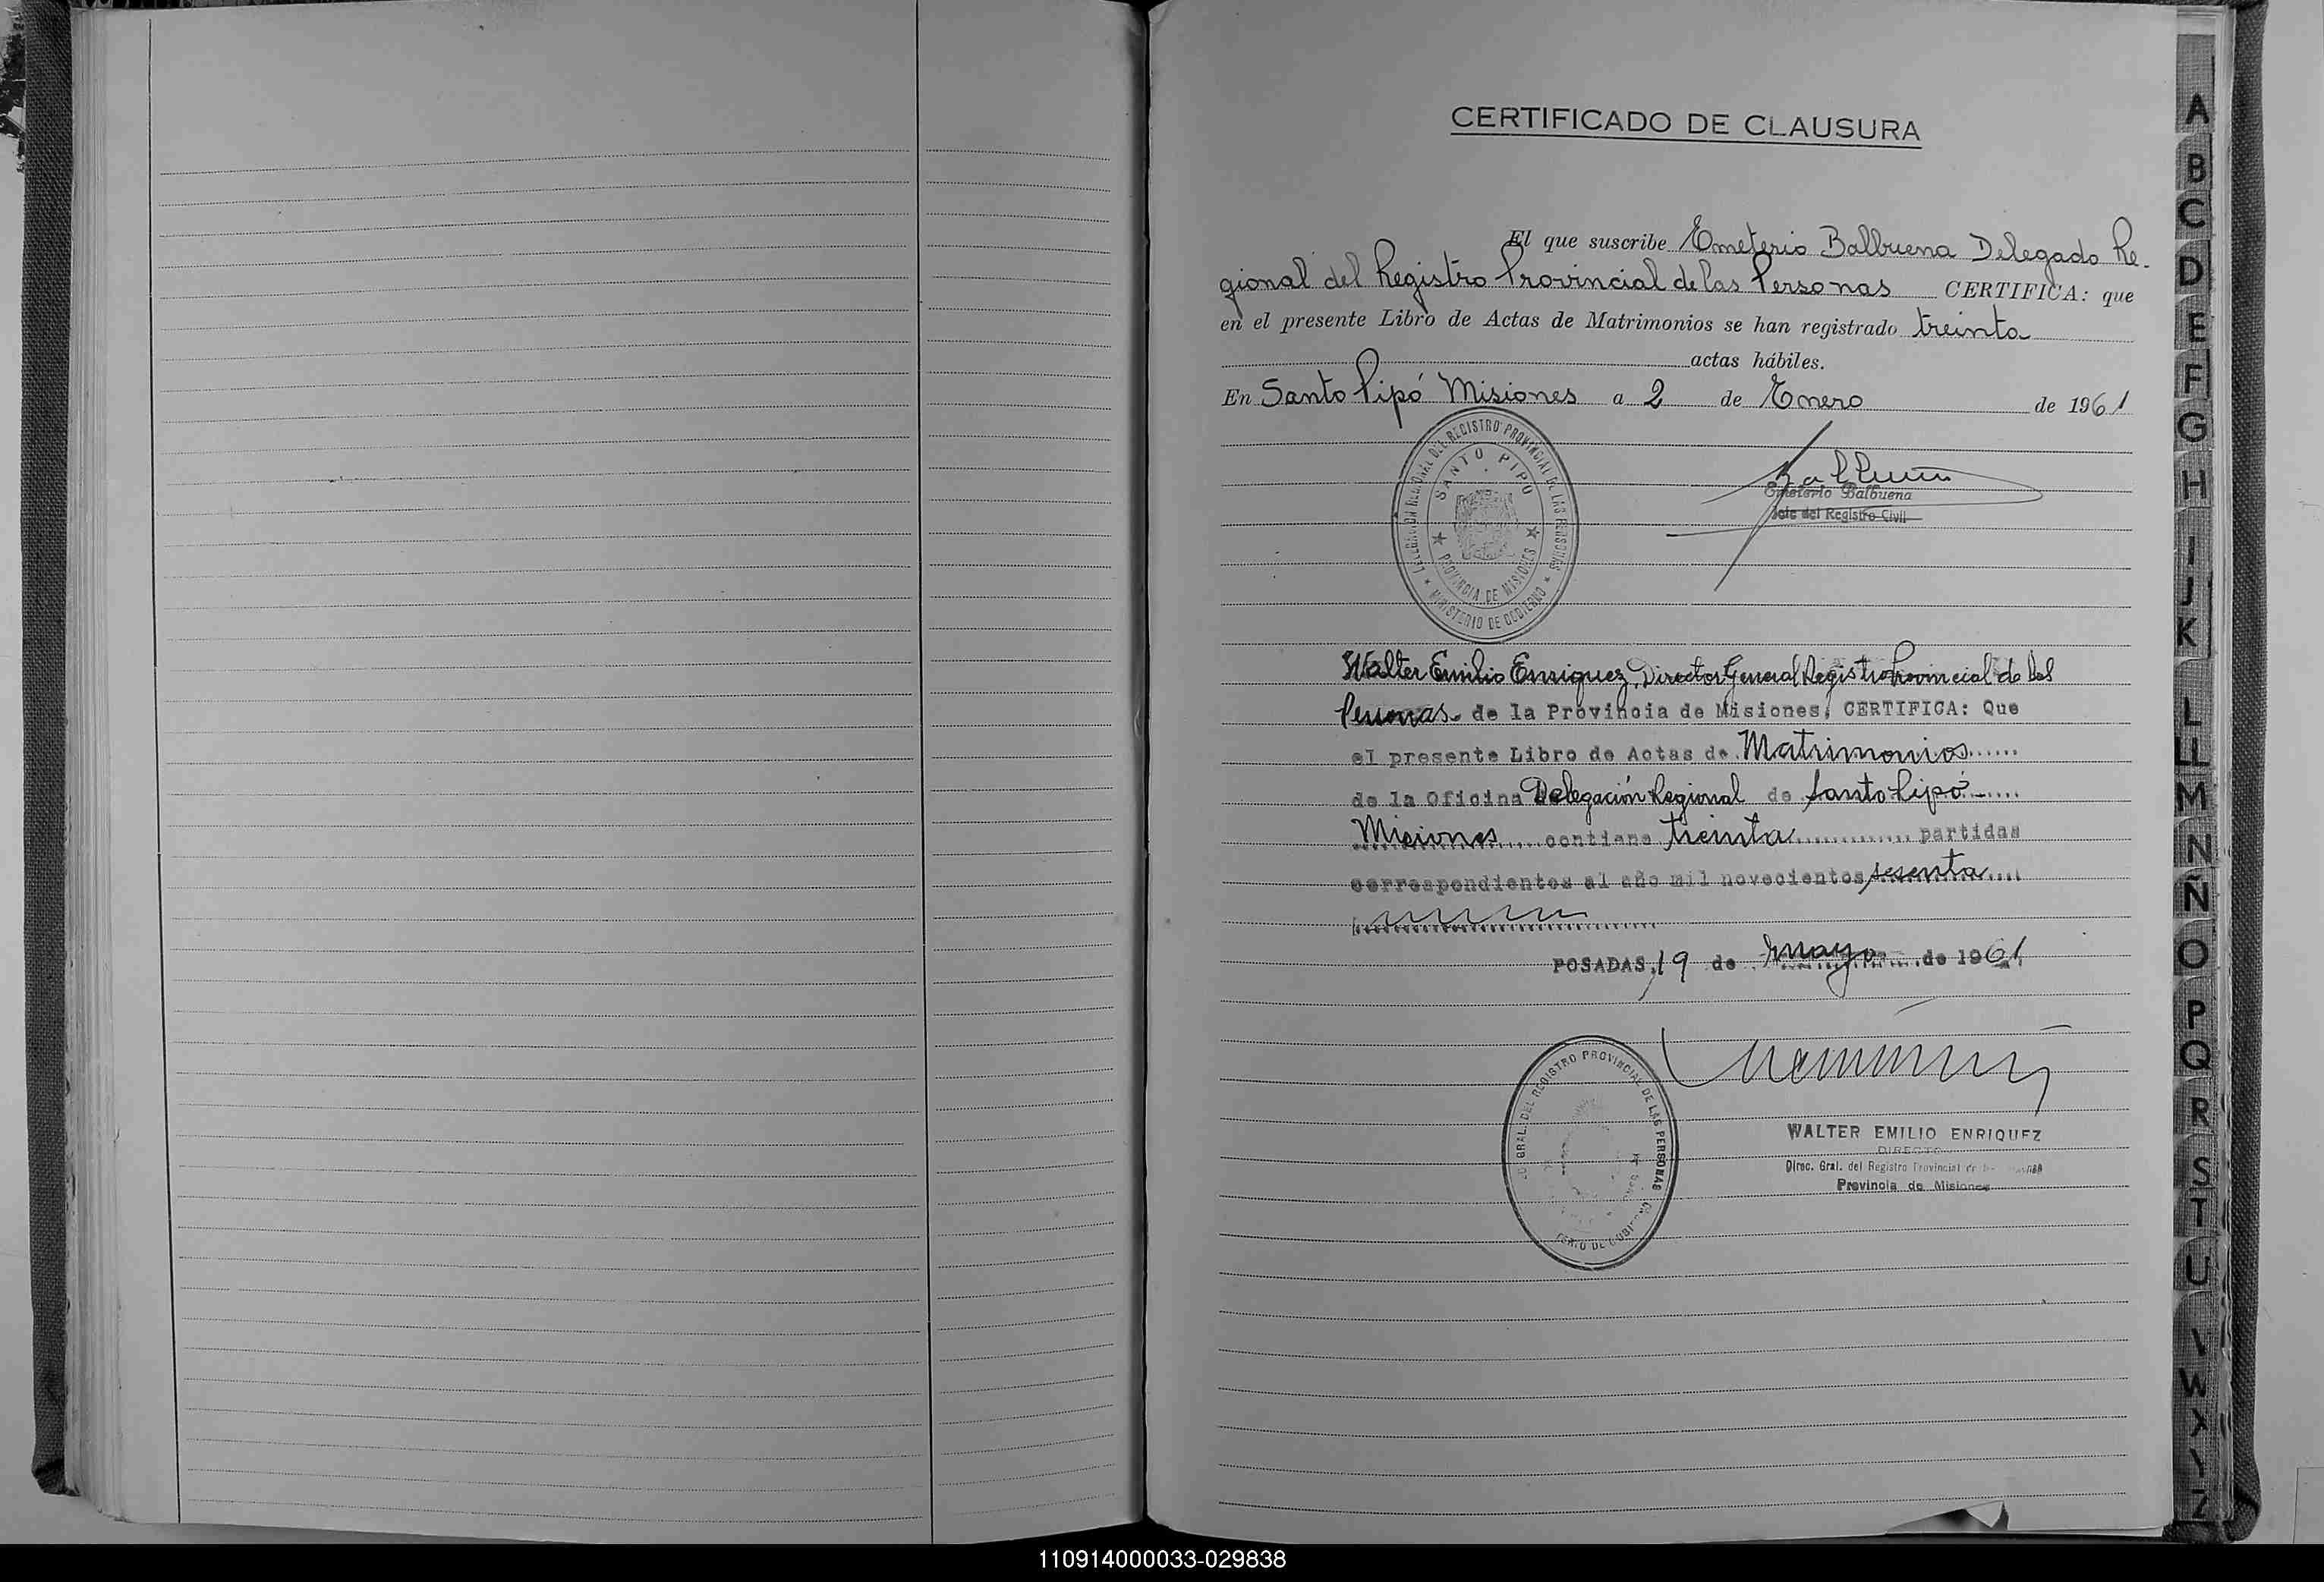 CERTIFICADO DE CLAUSURA
El que suscribe Emeterio Balbuena Delegado Re-
gional del Registro Provincial de las Personas CERTIFICA: que
en el presente Libro de Actas de Matrimonios se han registrado treinta
actas hábiles.
En Santo Pipó Misiones a 2 de Enero de 1961
DELEGACION REGIONAL DEL REGISTRO PROVINCIAL DE LAS PERSONAS
SANTO PIPO
PROVINCIA DE MISIONES
MINISTERIO DE GOBIERNO
Emeterio Balbuena
Jefe del Registro Civil
Walter Emilio Enriquez, Director General Registro Provincial de las
Personas de la Provincia de Misiones, CERTIFICA: Que
el presente Libro de Actas de Matrimonios
de la Oficina Delegación Regional de Santo Pipó
Misiones contiene treinta partidas
correspondientes al año mil novecientos sesenta
POSADAS, 19 de mayo de 1961
GRAL. DEL REGISTRO PROVINCIAL DE LAS PERSONAS
WALTER EMILIO ENRIQUEZ
DIRECTOR
Direc. Gral. del Registro Provincial de
Provincia de Misiones
A
B
C
D
E
F
G
H
I
J
K
L
LL
M
N
Ñ
O
P
Q
R
S
T
U
V
W
X
Y
Z
110914000033-029838